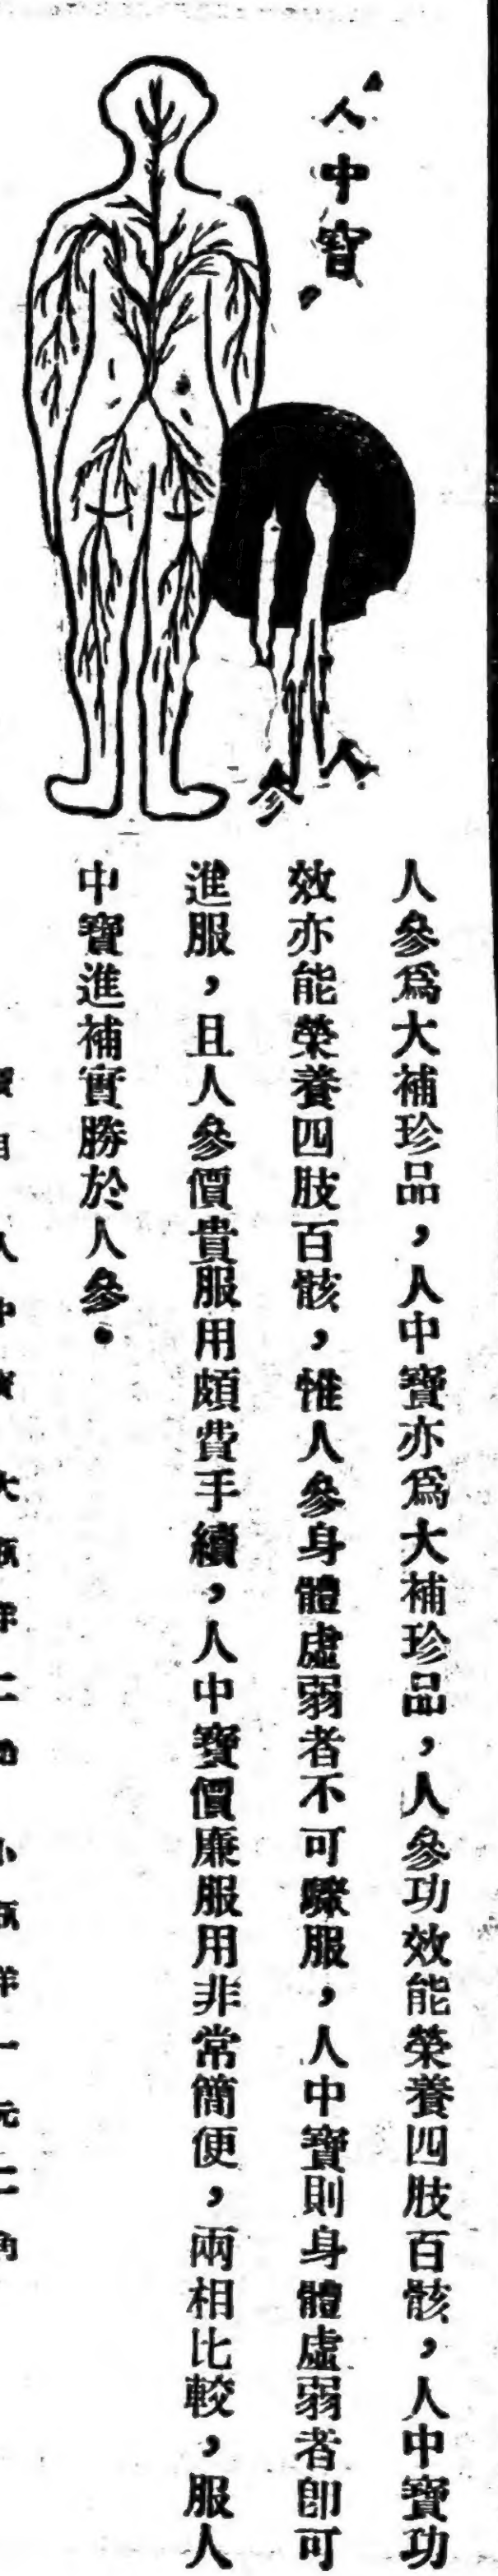 人中寶
人參
人參爲大補珍品，人中寶亦爲大補珍品，人參功效能榮養四肢百骸，人中寶功
效亦能榮養四肢百骸，惟人參身體虛弱者不可驟服，人中寶則身體虛弱者卽可
進服，且人參價貴服用頗費手續，人中寶價廉服用非常簡便，兩相比較，服人
中寶進補實勝於人參．